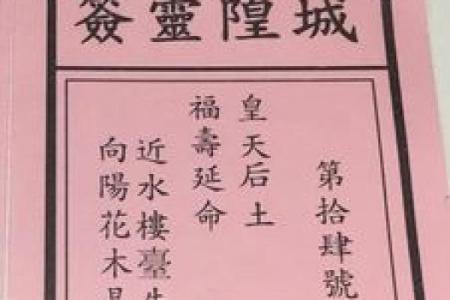 城隍靈簽
第拾肆號
皇天后土
福壽延命
近水樓臺
向陽花木